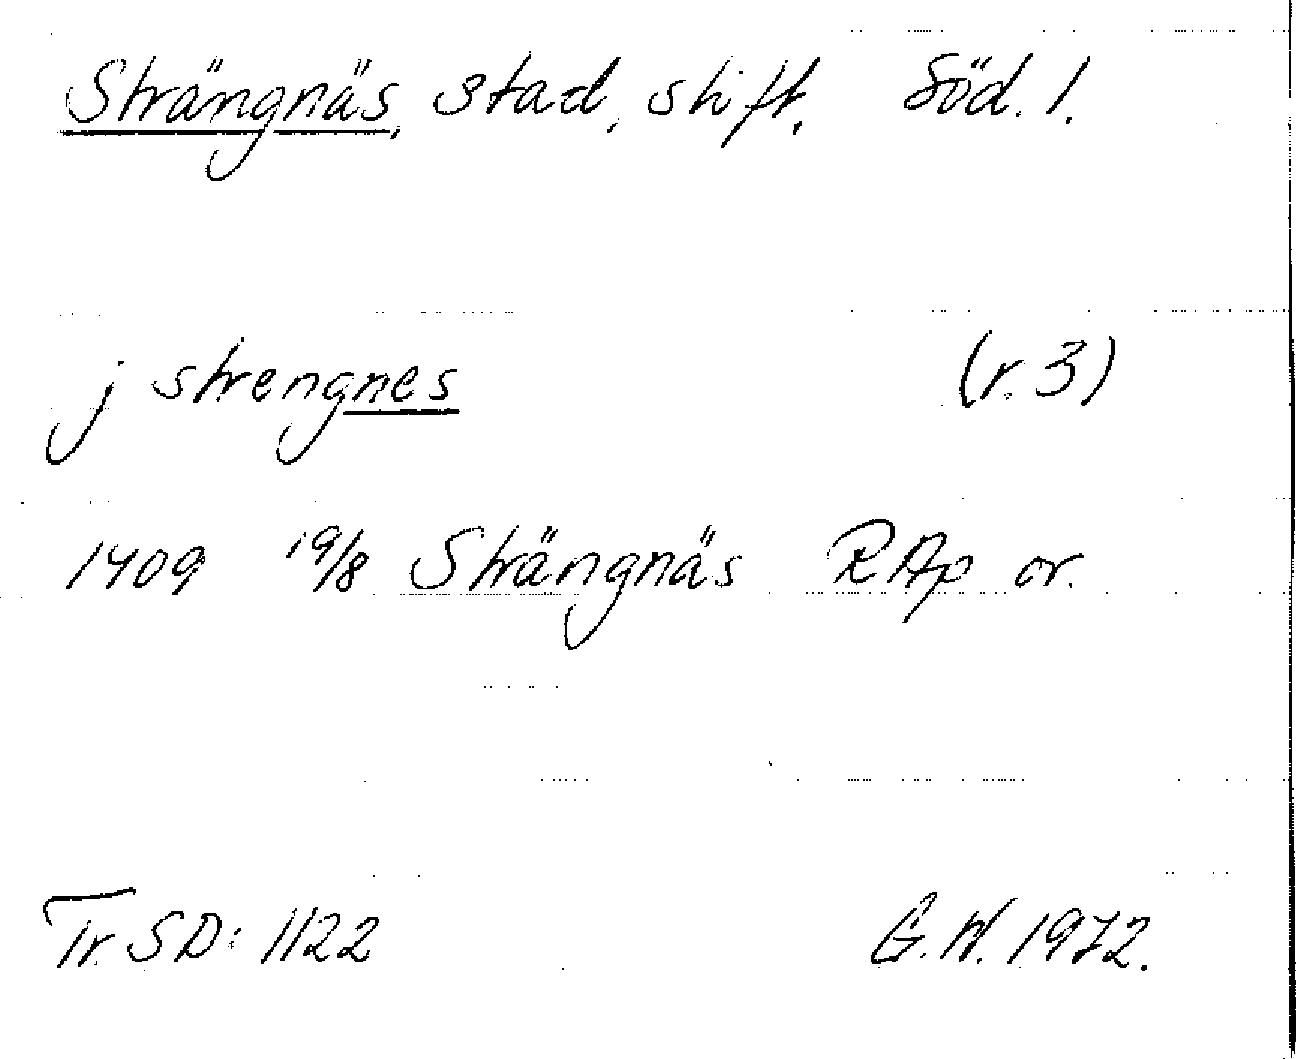 Strängnäs, stad, stift, Söd. l.
j strengnes (r. 3)
1409 19/8 Strängnäs RAp or.
Tr. SD: 1122 G.W. 1972.